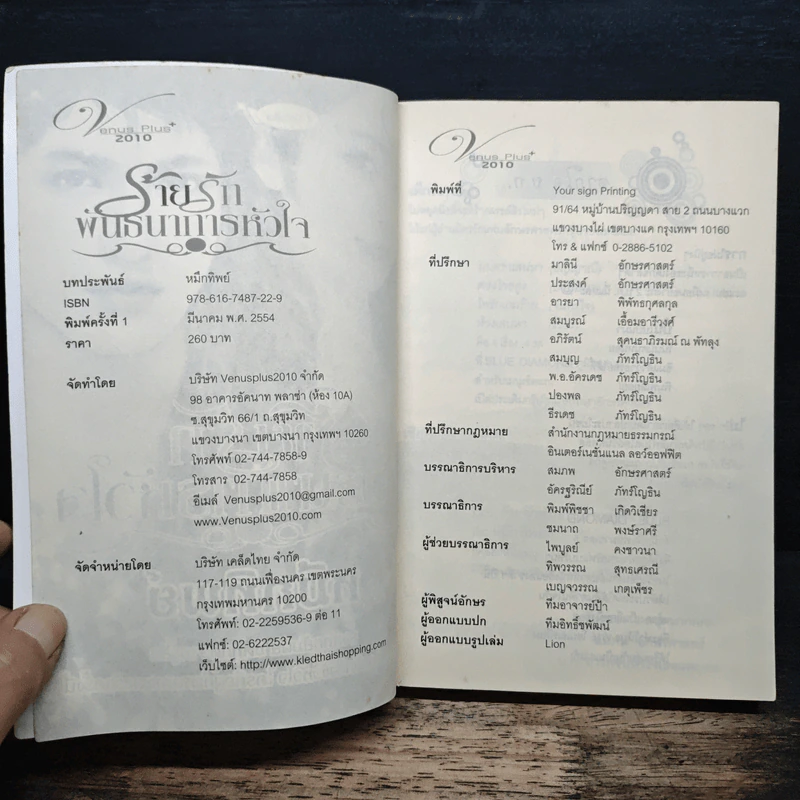 Venus Plus+
2010
ร้ายรัก
พันธนาการหัวใจ
บทประพันธ์ หมึกทิพย์
ISBN 978-616-7487-22-9
พิมพ์ครั้งที่ 1 มีนาคม พ.ศ. 2554
ราคา 260 บาท
จัดทำโดย บริษัท Venusplus2010 จำกัด
98 อาคารอัคนาท พลาซ่า (ห้อง 10A)
ซ.สุขุมวิท 66/1 ถ.สุขุมวิท
แขวงบางนา เขตบางนา กรุงเทพฯ 10260
โทรศัพท์ 02-744-7858-9
โทรสาร 02-744-7858
อีเมล์ Venusplus2010@gmail.com
www.Venusplus2010.com
จัดจำหน่ายโดย บริษัท เคล็ดไทย จำกัด
117-119 ถนนเฟื่องนคร เขตพระนคร
กรุงเทพมหานคร 10200
โทรศัพท์: 02-2259536-9 ต่อ 11
แฟกซ์: 02-6222537
เว็บไซต์: http://www.kledthaishopping.com
Venus Plus+
2010
พิมพ์ที่ Your sign Printing
91/64 หมู่บ้านปริญญดา สาย 2 ถนนบางแวก
แขวงบางไผ่ เขตบางแค กรุงเทพฯ 10160
โทร & แฟกซ์ 0-2886-5102
ที่ปรึกษา มาลินี อักษรศาสตร์
ประสงค์ อักษรศาสตร์
อารยา พิพัทธกุศลกุล
สมบูรณ์ เอื้อมอารีวงศ์
อภิรัตน์ สุคนธาภิรมณ์ ณ พัทลุง
สมบุญ ภัทร์โญธิน
พ.อ.อัครเดช ภัทร์โญธิน
ปองพล ภัทร์โญธิน
ธีรเดช ภัทร์โญธิน
ที่ปรึกษากฎหมาย สำนักงานกฎหมายธรรมกรณ์
อินเตอร์เนชั่นแนล ลอว์ออฟฟิต
บรรณาธิการบริหาร สมภพ อักษรศาสตร์
อัครฐริณีย์ ภัทร์โญธิน
บรรณาธิการ พิมพ์พิชชา เกิดวิเชียร
ชมนาถ พงษ์ราศรี
ผู้ช่วยบรรณาธิการ ไพบูลย์ คงชาวนา
ทิพวรรณ สุทธเศรณี
เบญจวรรณ เกตุเพ็ชร
ผู้พิสูจน์อักษร ทีมอาจารย์ป้า
ผู้ออกแบบปก ทีมอิทธิ์ชพัฒน์
ผู้ออกแบบรูปเล่ม Lion